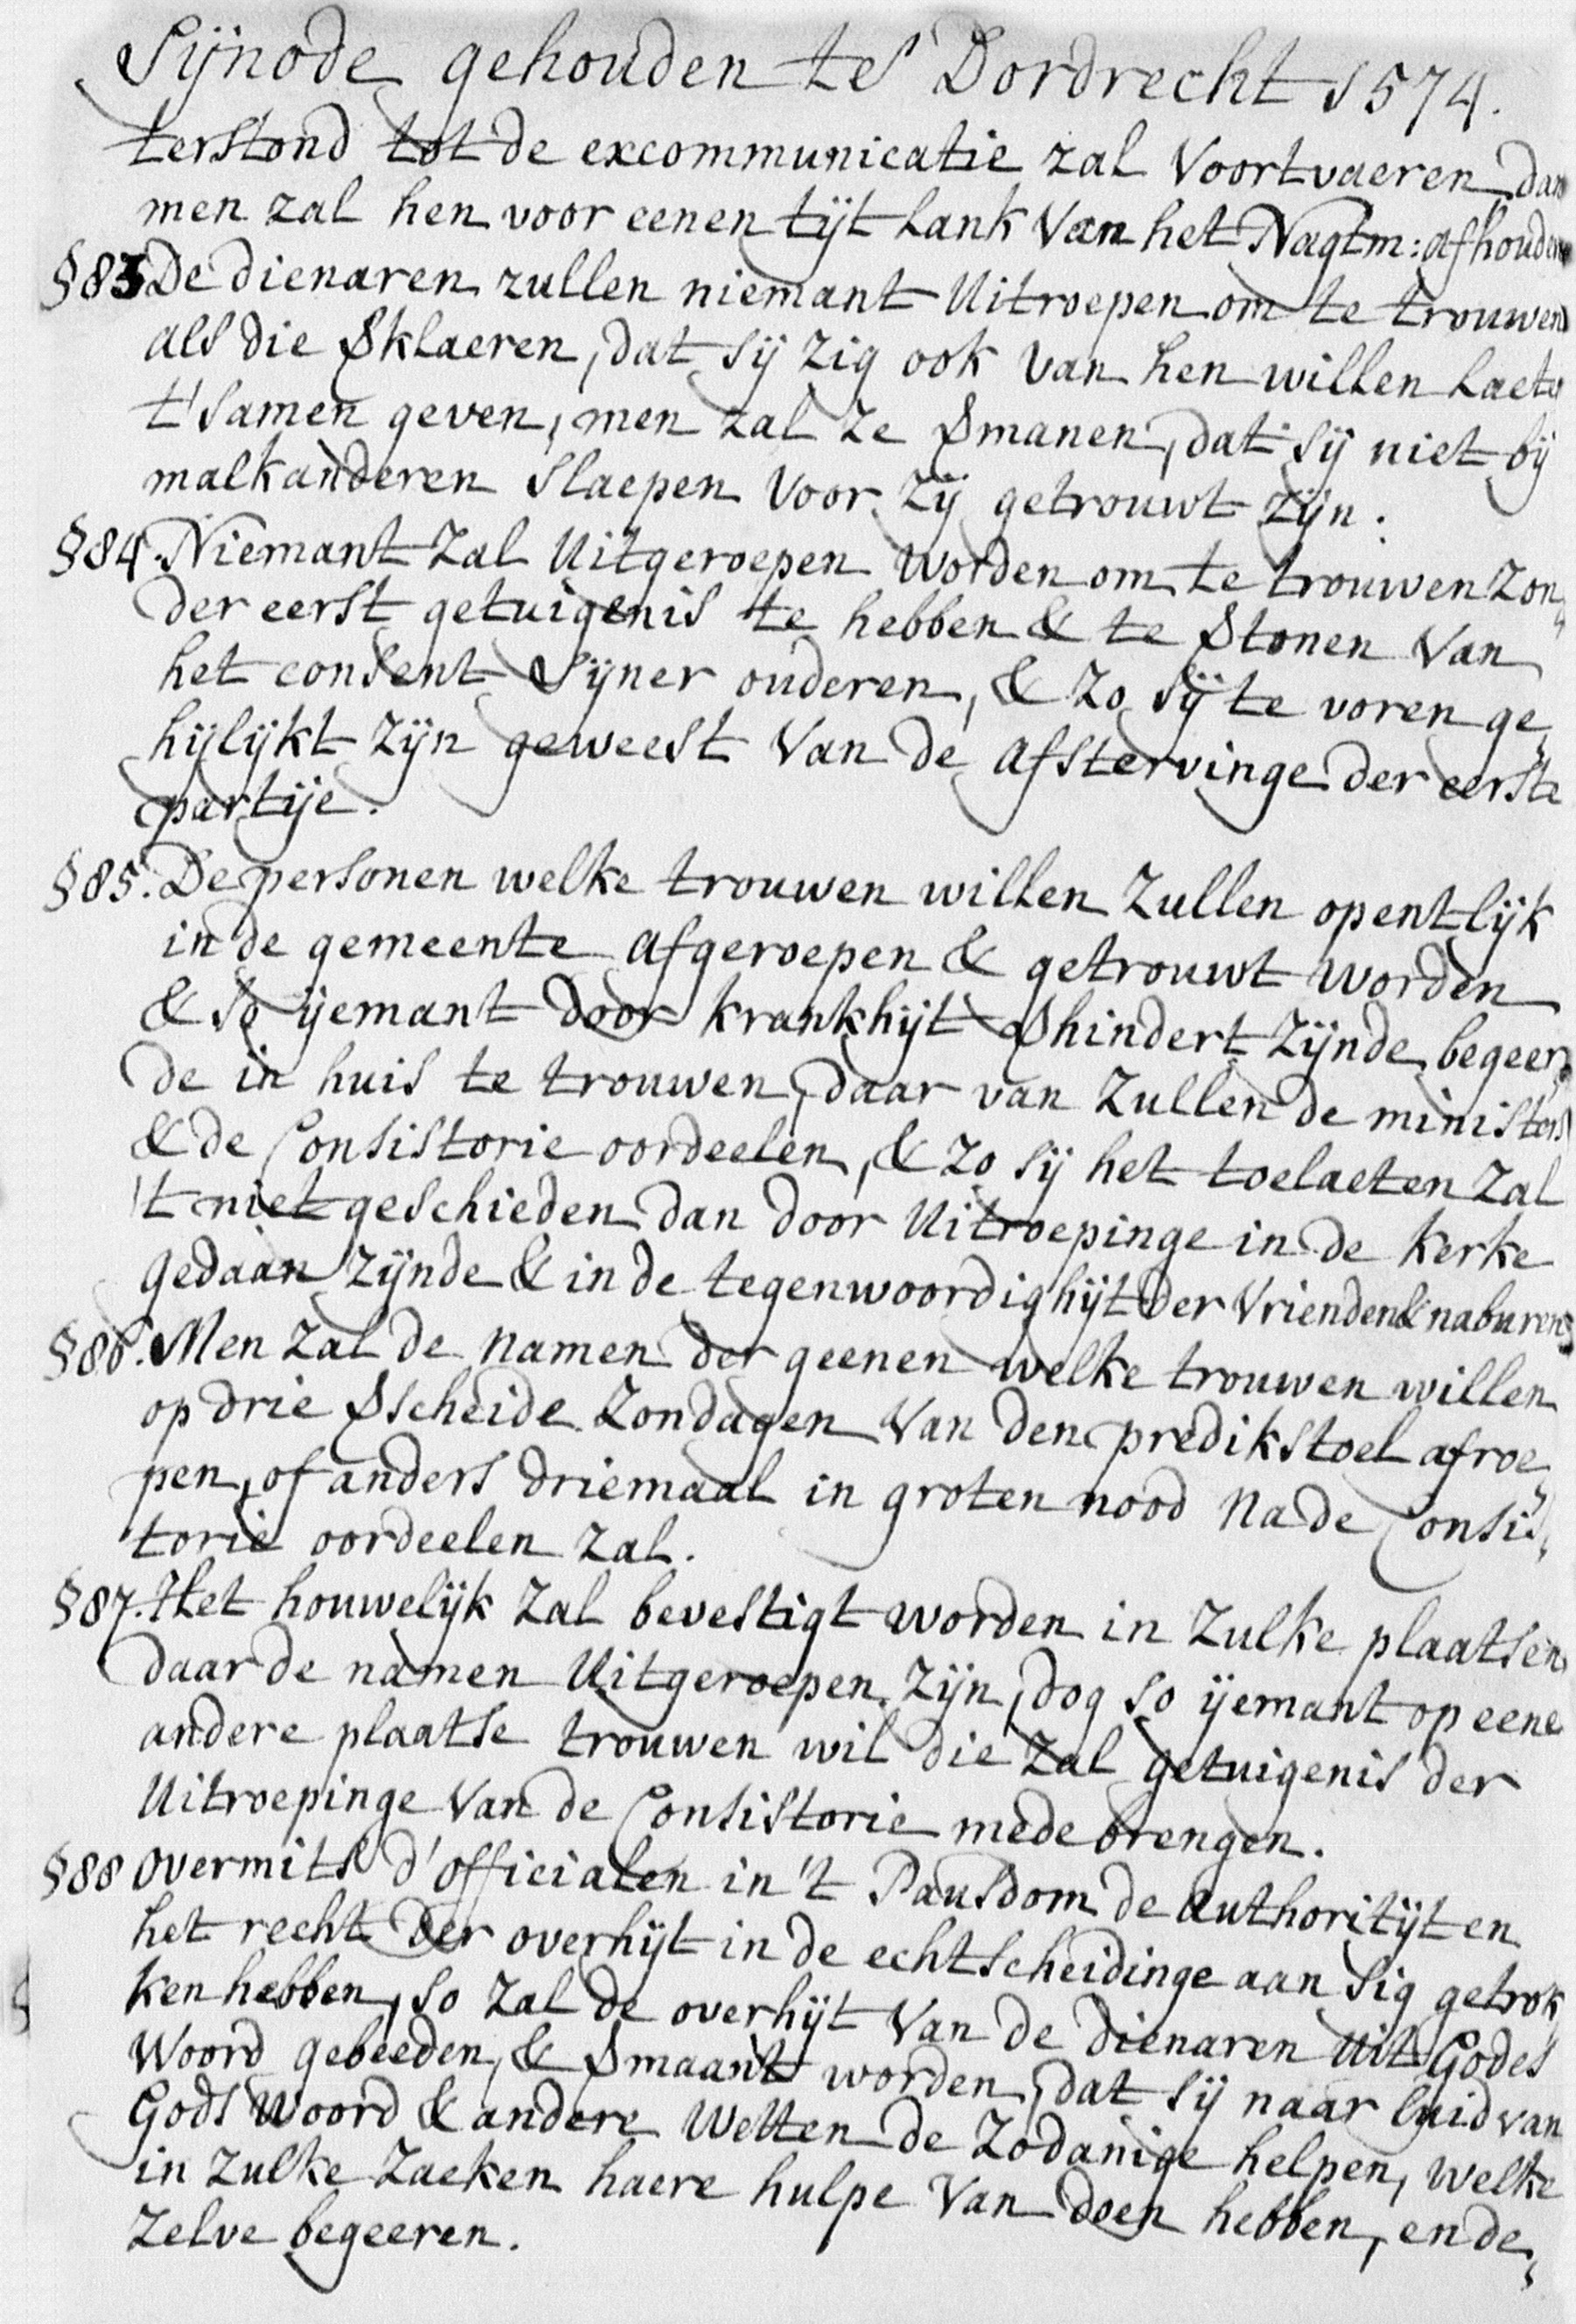 Sijnode gehouden te Dordrecht 1574.
terstond tot de excommunicatie zal Voortvaeren, dan
men zal hen voor eenen tijt lank Van het Nagtm: afhouden
§83 De dienaren zullen niemant Uitroepen om te trouwen
als die Sklaeren, dat sij zig ook Van hen willen laeten
t'samen geven, men zal ze Smanen, dat sij niet bij
malkanderen slaepen Voor zij getrouwt zijn.
§84. Niemant zal Uitgeroepen worden om te trouwen zon„
der eerst getuigenis te hebben & te Stonen Van
het consent sijner ouderen, & zo sij te voren ge„
hijlijkt zijn geweest Van de afstervinge der eerste
partije.
§85. De personen welke trouwen willen zullen opentlijk
in de gemeente afgeroepen & getrouwt worden
& so ijemant door krankhijt Shindert zijnde, begeer„
de in huis te trouwen, daar van zullen de ministers
& de Consistorie oordeelen, & zo sij het toelaeten zal
't niet geschieden dan door Uitroepinge in de kerke
gedaan zijnde & in de tegenwoordighijt der Vrienden & naburen
§86. Men zal de namen der geenen welke trouwen willen
op drie Sscheide zondagen Van den predikstoel afroe„
pen, of anders driemaal in groten nood na de Consis„
torie oordeelen zal.
§87. Het houwelijk zal bevestigt worden in zulke plaatsen
daar de namen Uitgeroepen zijn, dog so ijemant op eene
andere plaatse trouwen wil die zal getuigenis der
Uitroepinge Van de Consistorie mede brengen.
§88 Overmits d'officialen in 't Pausdom de authoritijt en
het recht der overhijt in de echtscheidinge aan sig getrok„
ken hebben, so zal de overhijt Van de dienaren Uit Godes
Woord gebeeden, & Smaant worden, dat sij naar luid van
Gods woord & andere Wetten de zodanige helpen, welke
in zulke zaeken haere hulpe Van doen hebben, en de„
zelve begeeren.